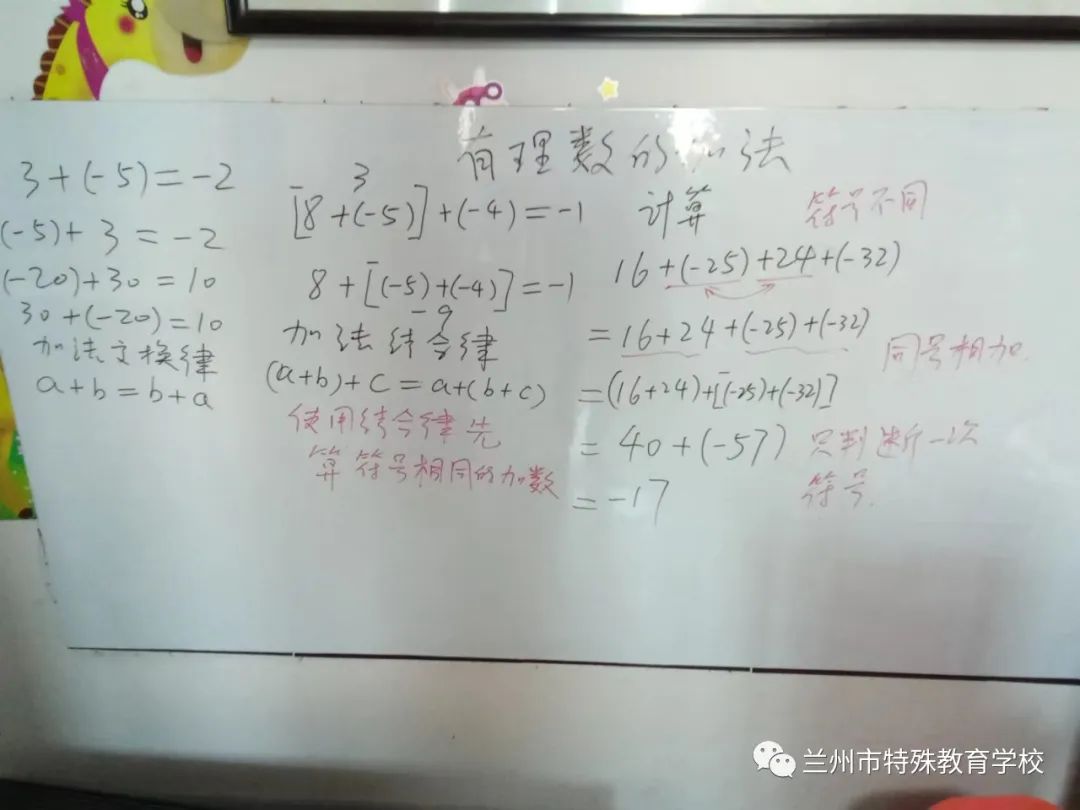 有理数的加法
3+(-5)=-2
(-5)+3=-2
(-20)+30=10
30+(-20)=10
加法交换律
a+b=b+a
3
[8+(-5)]+(-4)=-1
8+[(-5)+(-4)]=-1
-9
加法结合律
(a+b)+c=a+(b+c)
使用结合律先
算符号相同的加数
计算 符号不同
16+(-25)+24+(-32)
=16+24+(-25)+(-32)
同号相加.
=(16+24)+[(-25)+(-32)]
=40+(-57) 只判断一次
符号.
=-17
兰州市特殊教育学校